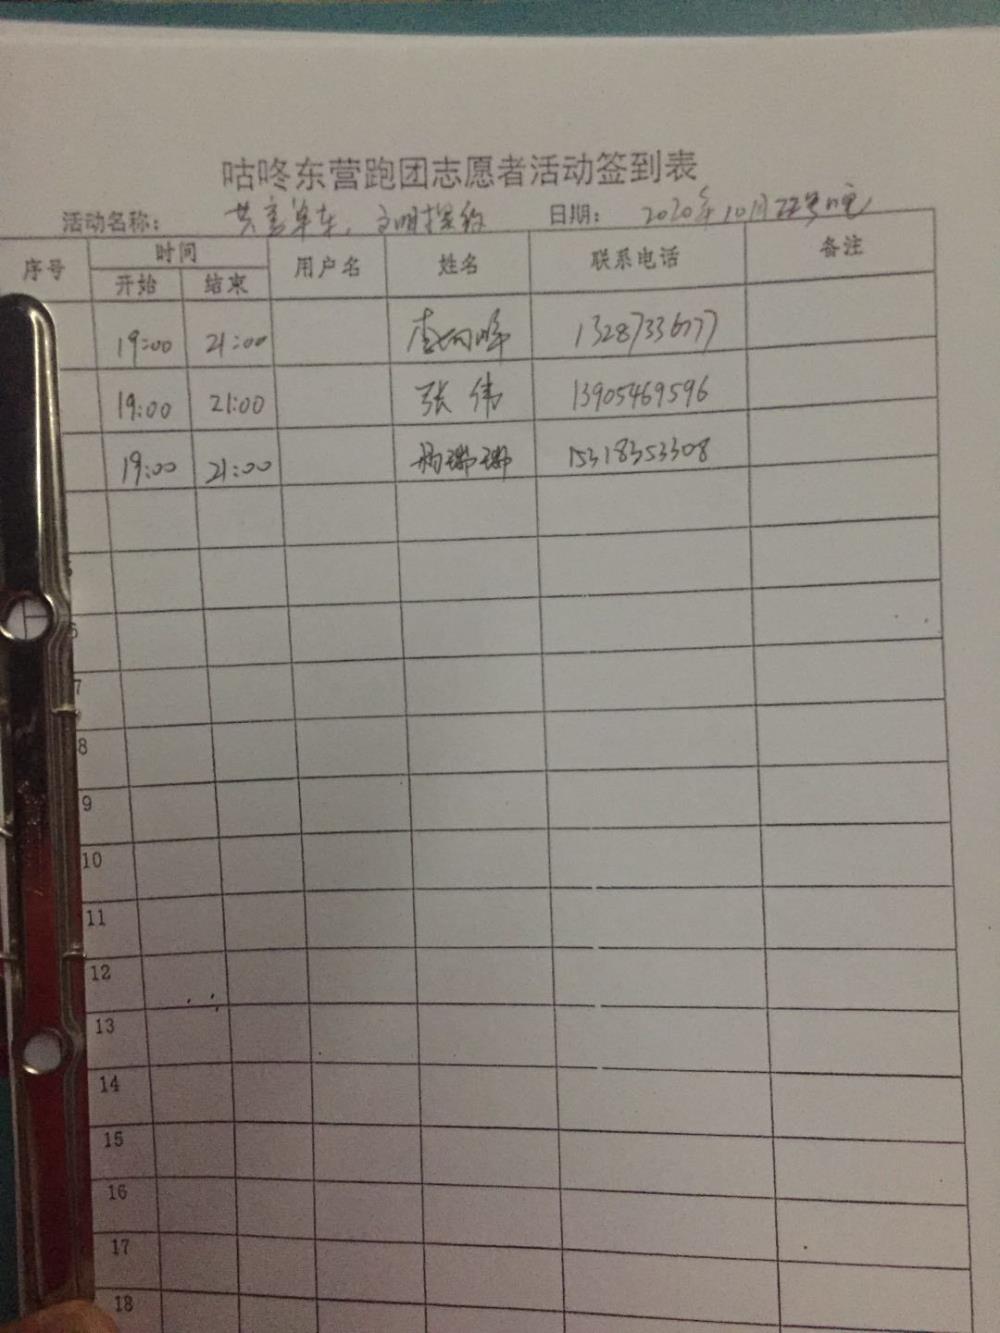 咕咚东营跑团志愿者活动签到表
活动名称： 共享单车，文明摆放 日期： 2020年10月22号
序号 时间 用户名 姓名 联系电话 备注
开始 结束
19:00 21:00 李向晖 13287336777
19:00 21:00 张伟 13905469596
19:00 21:00 15318353308
6
7
8
9
10
11
12
13
14
15
16
17
18